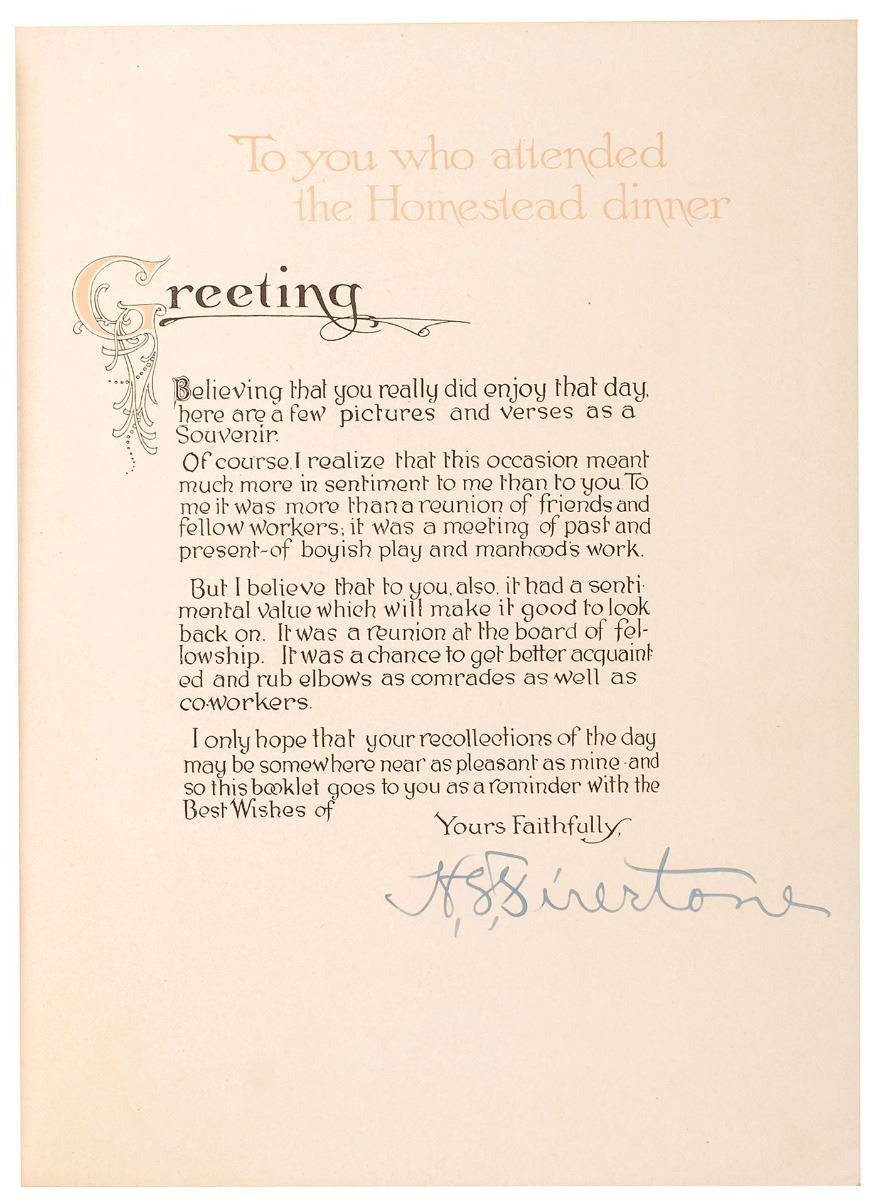 To you who attended
the Homestead dinner
Greeting
Believing that you really did enjoy that day,
here are a few pictures and verses as a
Souvenir.
Of course I realize that this occasion meant
much more in sentiment to me than to you. To
me it was more than a reunion of friends and
fellow workers; it was a meeting of past and
present-of boyish play and manhood's work.
But I believe that to you, also, it had a senti-
mental value which will make it good to look
back on. It was a reunion at the board of fel-
lowship. It was a chance to get better acquaint-
ed and rub elbows as comrades as well as
co-workers.
I only hope that your recollections of the day
may be somewhere near as pleasant as mine-and
so this booklet goes to you as a reminder with the
Best Wishes of
Yours Faithfully,
H. S. Firestone